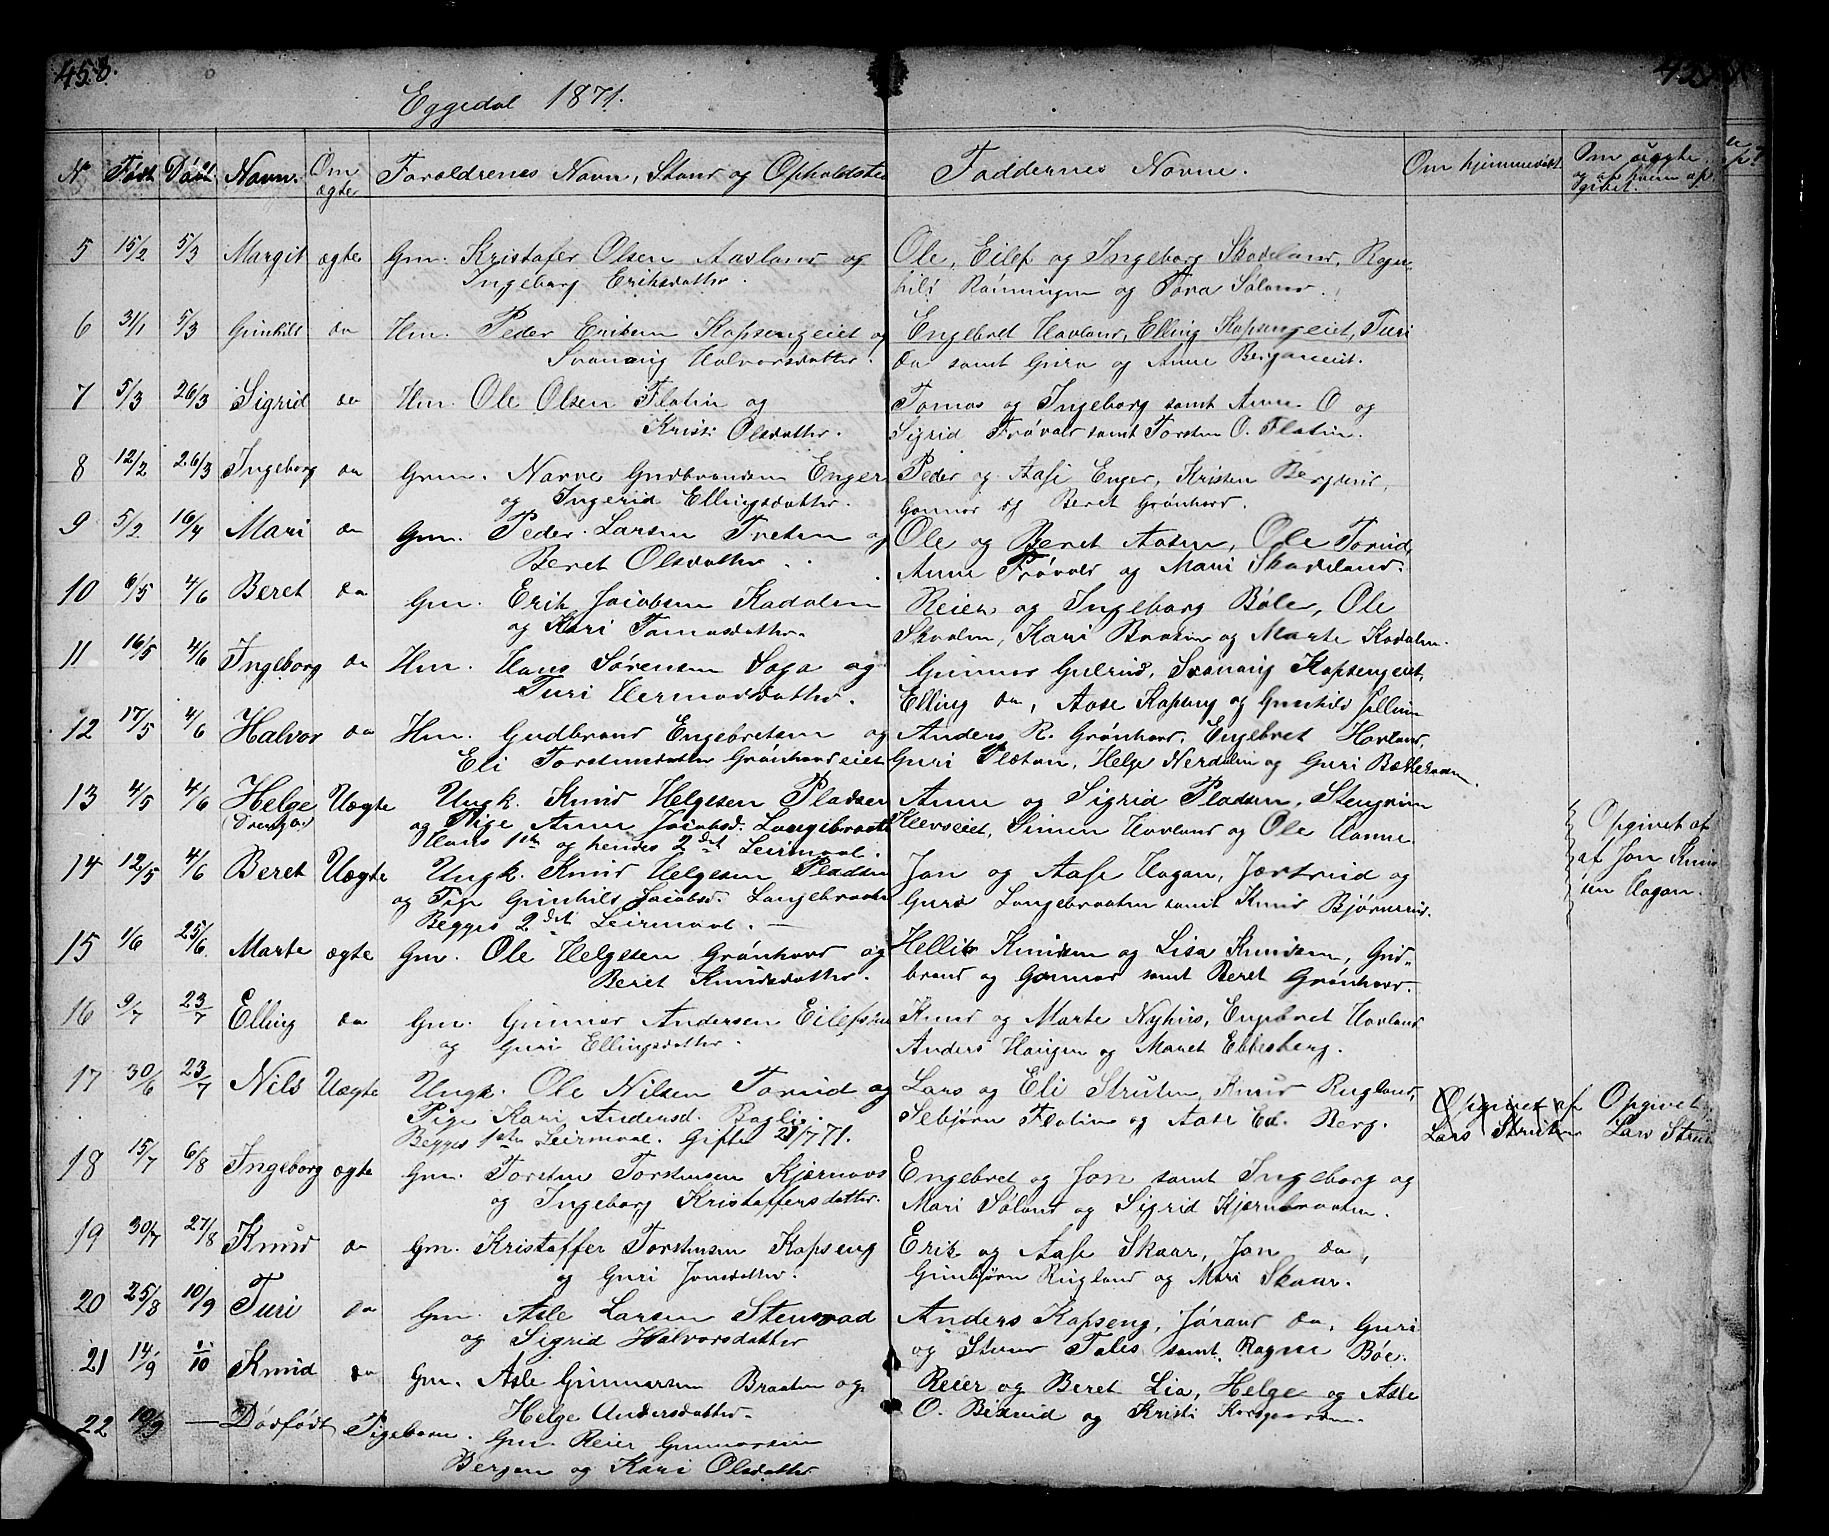 458.
Eggedal 1871.
No Født Døbt Navn. Om ægte Foraldrenes Navn, Stand og Opholdsted Faddernes Navne. Om hjemmedøbt Om uægte og af hvem opgivet.
5 15/2 5/3 Margit ægte Gm. Kristofer Olsen Aavland og Ole, Eilef og Ingeborg Skadeland, Ragn
Ingeborg Eriksdatter. hild Rønningen og Tora Søland.
6 31/1 5/3 Gunhild do Hm. Peder Eriksen Kopsengeiet og Engebret Hovland, Elling Kopsengeiet, Turi
Svanaug Halvorsdatter. do samt Guro og Anne
7 5/3 26/3 Sigrid do Hm. Ole Olsen Flatin og Tomas og Ingeborg samt Anne O og
Kristi Olsdatter. Sigrid Frøvold samt Torsten O. Flatin.
8 12/2 26/3 Ingeborg do Gm. Narve Gudbrandsen Enger Peder og Aase Enger, Kristen
og Ingerid Ellingsdatter. Gonnor og Beret Grønhovd.
9 5/2 16/4 Mari do Gm. Peder Larsen Treten og Ole og Beret Aasen, Ole Torud,
Beret Olsdatter. Anne Frøvold og Mari Skadeland.
10 6/5 4/6 Beret do Gm. Erik Jacobsen Kadalen Reier og Ingeborg Bøle, Ole
og Kari Tomasdatter. Skodlen, Kari Braaten og Marte Kodalen.
11 16/5 4/6 Ingeborg do Hm. Hans Sørensen Saga og Gunnor Gulrud, Svanaug Kopsengeiet,
Turi Hermodsdatter. Elling do, Aase Kopseng og Gunhild
12 17/5 4/6 Halvor do Hm. Gudbrand Engebretsen og Anders R. Grønhovd, Engebret Hovland,
Eli Torstensdatter Grønhovdeiet Guri Pladsen, Helge Nerdalen og Guri
13 4/5 4/6 Helge Uægte Ungk. Knud Helgesen Pladsen Anne og Sigrid Pladsen, Stengrim
(Dreng) og Pige Anne Jacobsd. Langebraate Simen Hovland og Ole
Hans 1ste og hendes 2det Leiermaal. Opgivet af
14 12/5 4/6 Beret Uægte Ungk. Knud Helgesen Pladsen Jon og Aase Hagan, Jørtrud og af Jon Knud
og Pige Gunhild Jacobsd. Langebraaten Guri Langebraaten samt Knud Bjørnerud. sen Hagan.
Begges 2det Leirmaal. —
15 1/6 25/6 Marte ægte Gm. Ole Helgesen Grønhovd og Hellik Knudsen og Lisa Knudsen, Gud-
Beret Knudsdatter. brand og Gonnor samt Beret Grønhovd.
16 9/7 23/7 Elling do Gm. Gunnor Andersen Knud og Marte Nyhus, Engebret Hovland
og Guri Ellingsdatter. Anders Haugen og Maret Ebbesberg.
17 30/6 23/7 Nils Uægte Ungk. Ole Nilsen Torud og Lars og Eli Struten, Knud Rugland, Opgivet af Opgivet
Pige Kari Andersd. Bagli. Sebjørn Flatin og Aase Ed. Berg. Lars Struten Lars Strut
Begges 1ste Leirmaal. Gifte 21/7 71.
18 15/7 6/8 Ingeborg ægte Gm. Torsten Torstensen Engebret og Jon samt Ingeborg og
og Ingeborg Kristoffersdatter. Mari Søland og Sigrid Kjernbraaten.
19 30/7 27/8 Knud do Gm. Kristoffer Torstensen Kopseng Erik og Aase Skaar, Jon do,
og Guri Jonsdatter. Gunbjørn Rugland og Mari Skaar.
20 25/8 10/9 Turi do Gm. Asle Larsen Stensrad Anders Kopseng, Jørand do, Guri
og Sigrid Halvorsdatter og Stener Fales samt Ragne Bøe.
21 14/9 1/10 Knud do Gm. Asle Gunnarsen Braaten og Reier og Beret Lia, Helge og Asle
Helge Andersdatter. O. og Kristi
22 10/9 — Dødfødt Pigebarn. Gm. Reier Gunnorsen
Bergan og Kari Olsdatter